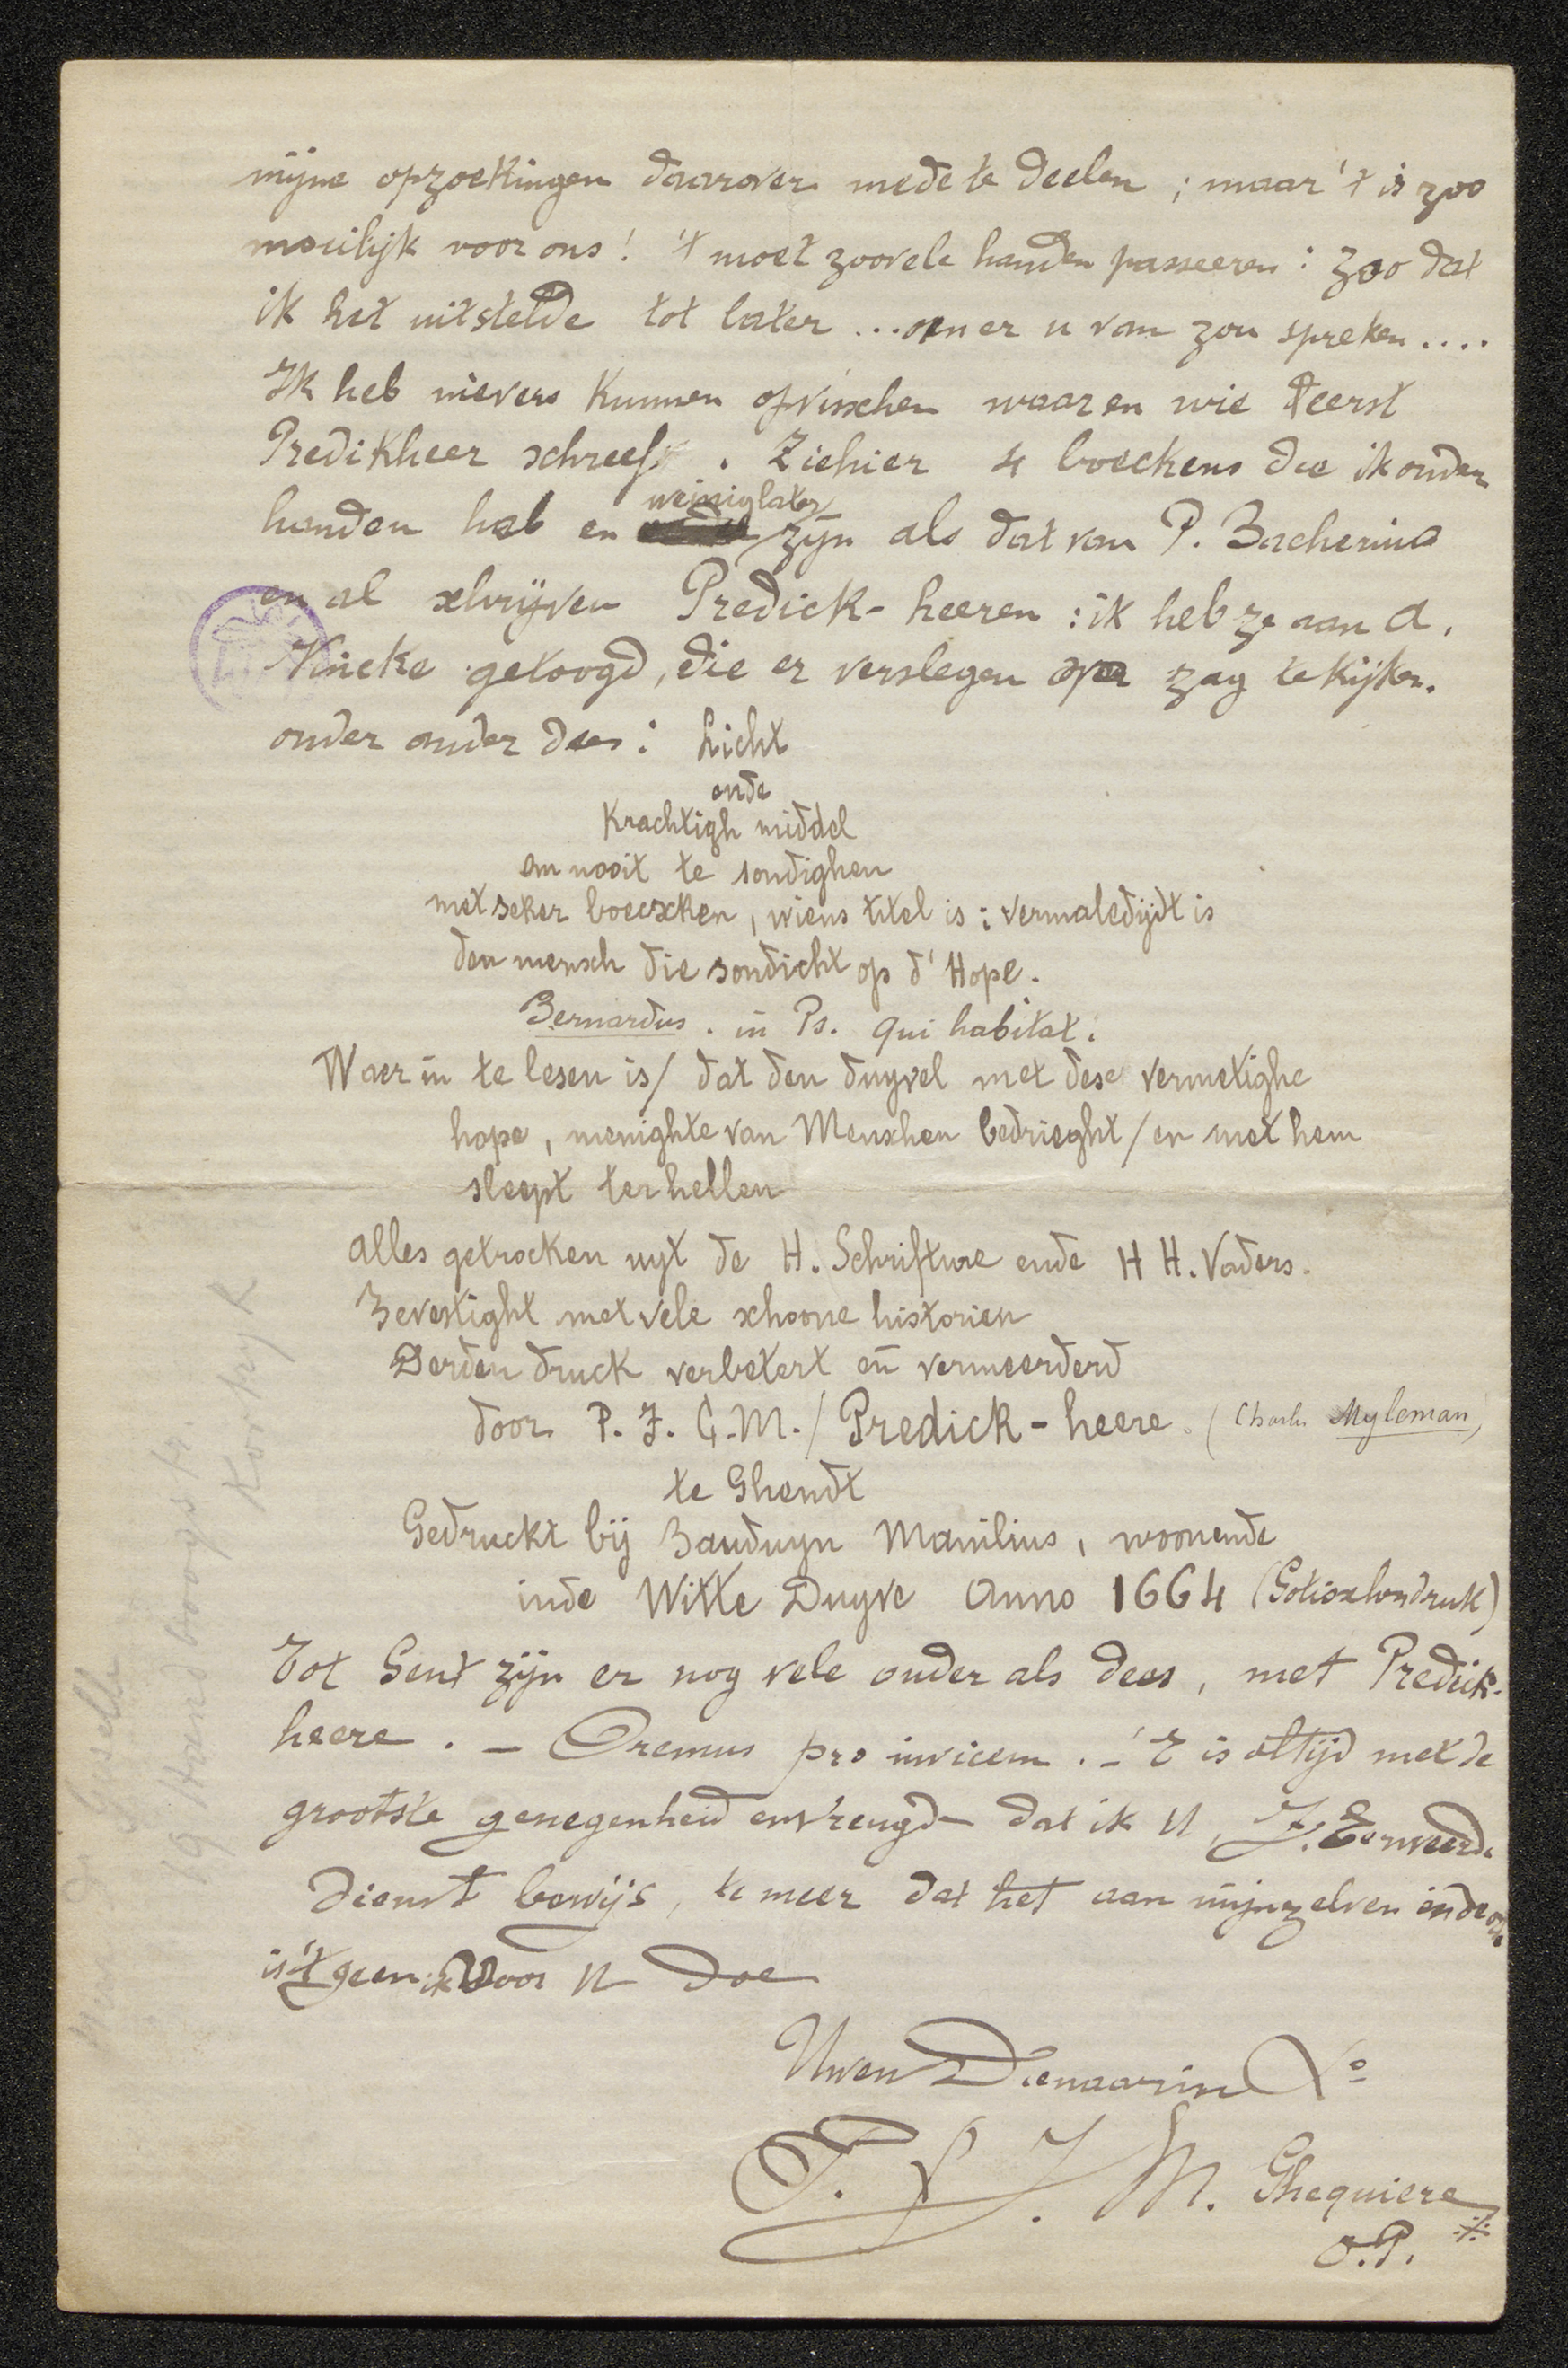 mijne opzoekingen daarover mede te deelen ; maar 't is zoo
moeilijk voor ons ! 't moet zoovele handen passeeren : zoo dat
ik het uitstelde tot later ... en er u van zou spreken ....
Ik heb nievers kunnen opvisschen waar en wie teerst
Predikheer schreef . Ziehier 4 boeckens die ik onder
weinig later
handen heb en zijn als dat van P. Bacherius
en al schrijven Predick-heeren : ik heb ze aan A.
getoogd, die er verslegen op zag te kijken.
onder ander dees : Licht
ende
Krachtigh middel
om nooit te sondighen
met seker boecxken, wiens titel is : Vermaledijdt is
den mensch die sondicht op d' Hope.
Bernardus . in Ps. qui habitat.
Waer in te lesen is / dat den duyvel met dese vermetighe
hope, menighte van Menschen bedrieght / en met hem
sleept ter hellen
Alles getrocken uyt de H. Schrifture ende H H. Vaders.
Bevestight met vele schoone historien
Derden druck verbetert en̄ vermeerderd
door P. J. C. M. / Predick-heere. (Charles Myleman)
te Ghendt
Gedruckt bij Bauduyn Manilius, woonende
inde Witte Duyve Anno 1664 (Gotischendruk)
Tot Gent zijn er nog vele ouder als dees, met Predick-
heere . - Oremus pro invicem . - 'T is altijd met de
grootste genegenheid en vreugd dat ik U, Z. Eerweerde
dienst bewijs, te meer dat het aan mijnzelven
is 't geen ik voor U doe
Uwen Dienaar in Xo
P. L. J. M. Ghequiere
O.P.
Kortryk